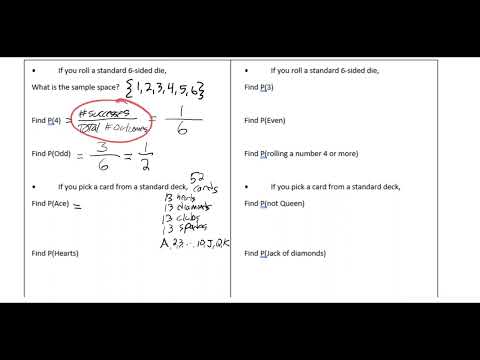 • If you roll a standard 6-sided die,
What is the sample space? {1,2,3,4,5,6}
Find P(4) = # successes / Total # outcomes = 1/6
Find P(Odd) = 3/6 = 1/2
• If you pick a card from a standard deck, 52 cards
Find P(Ace) =
13 hearts
13 diamonds
13 clubs
13 spades
A,2,3...10,J,Q,K
Find P(Hearts)
• If you roll a standard 6-sided die,
Find P(3)
Find P(Even)
Find P(rolling a number 4 or more)
• If you pick a card from a standard deck,
Find P(not Queen)
Find P(Jack of diamonds)